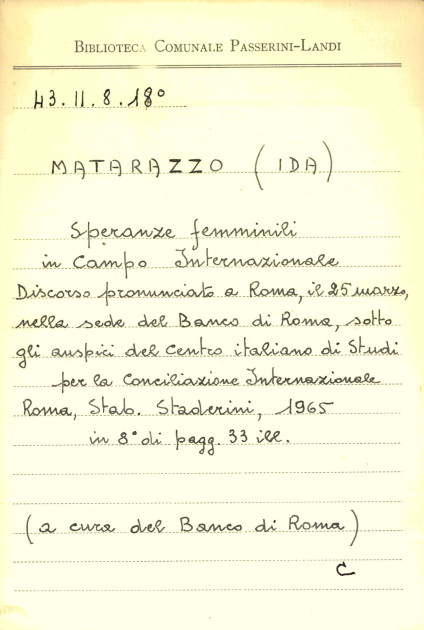 BIBLIOTECA COMUNALE PASSERINI-LANDI
43.11.8.18°
MATARAZZO (IDA)
Speranze femminili
in Campo Internazionale
Discorso pronunciato a Roma, il 25 marzo,
nella sede del Banco di Roma, sotto
gli auspici del Centro italiano di Studi
per la Conciliazione Internazionale
Roma, Stab. Staderini, 1965
in 8° di pagg. 33 ill.
(a cura del Banco di Roma)
C